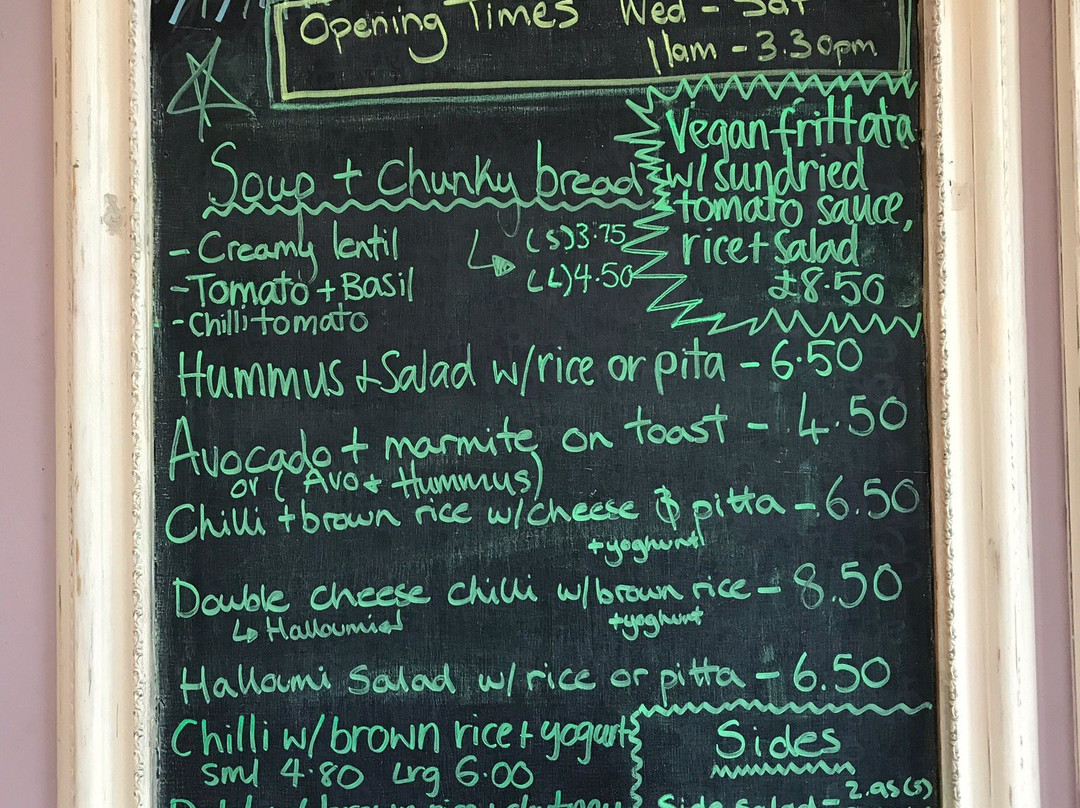 Opening Times Wed - Sat
11am - 3.30pm
Vegan frittata
w/ sundried
tomato sauce,
rice + Salad
£8.50
Soup + Chunky bread
- Creamy lentil
- Tomato + Basil
- Chilli tomato
(S) 3.75
(L) 4.50
Hummus & Salad w/ rice or pita - 6.50
Avocado + marmite on toast - 4.50
or (Avo & Hummus)
Chilli + brown rice w/ cheese & pitta - 6.50
+ yoghurt
Double cheese chilli w/ brown rice - 8.50
+ yoghurt
Halloumi Salad w/ rice or pitta - 6.50
Chilli w/ brown rice + yogurt
Sml 4.80 Lrg 6.00
Sides
Side salad -